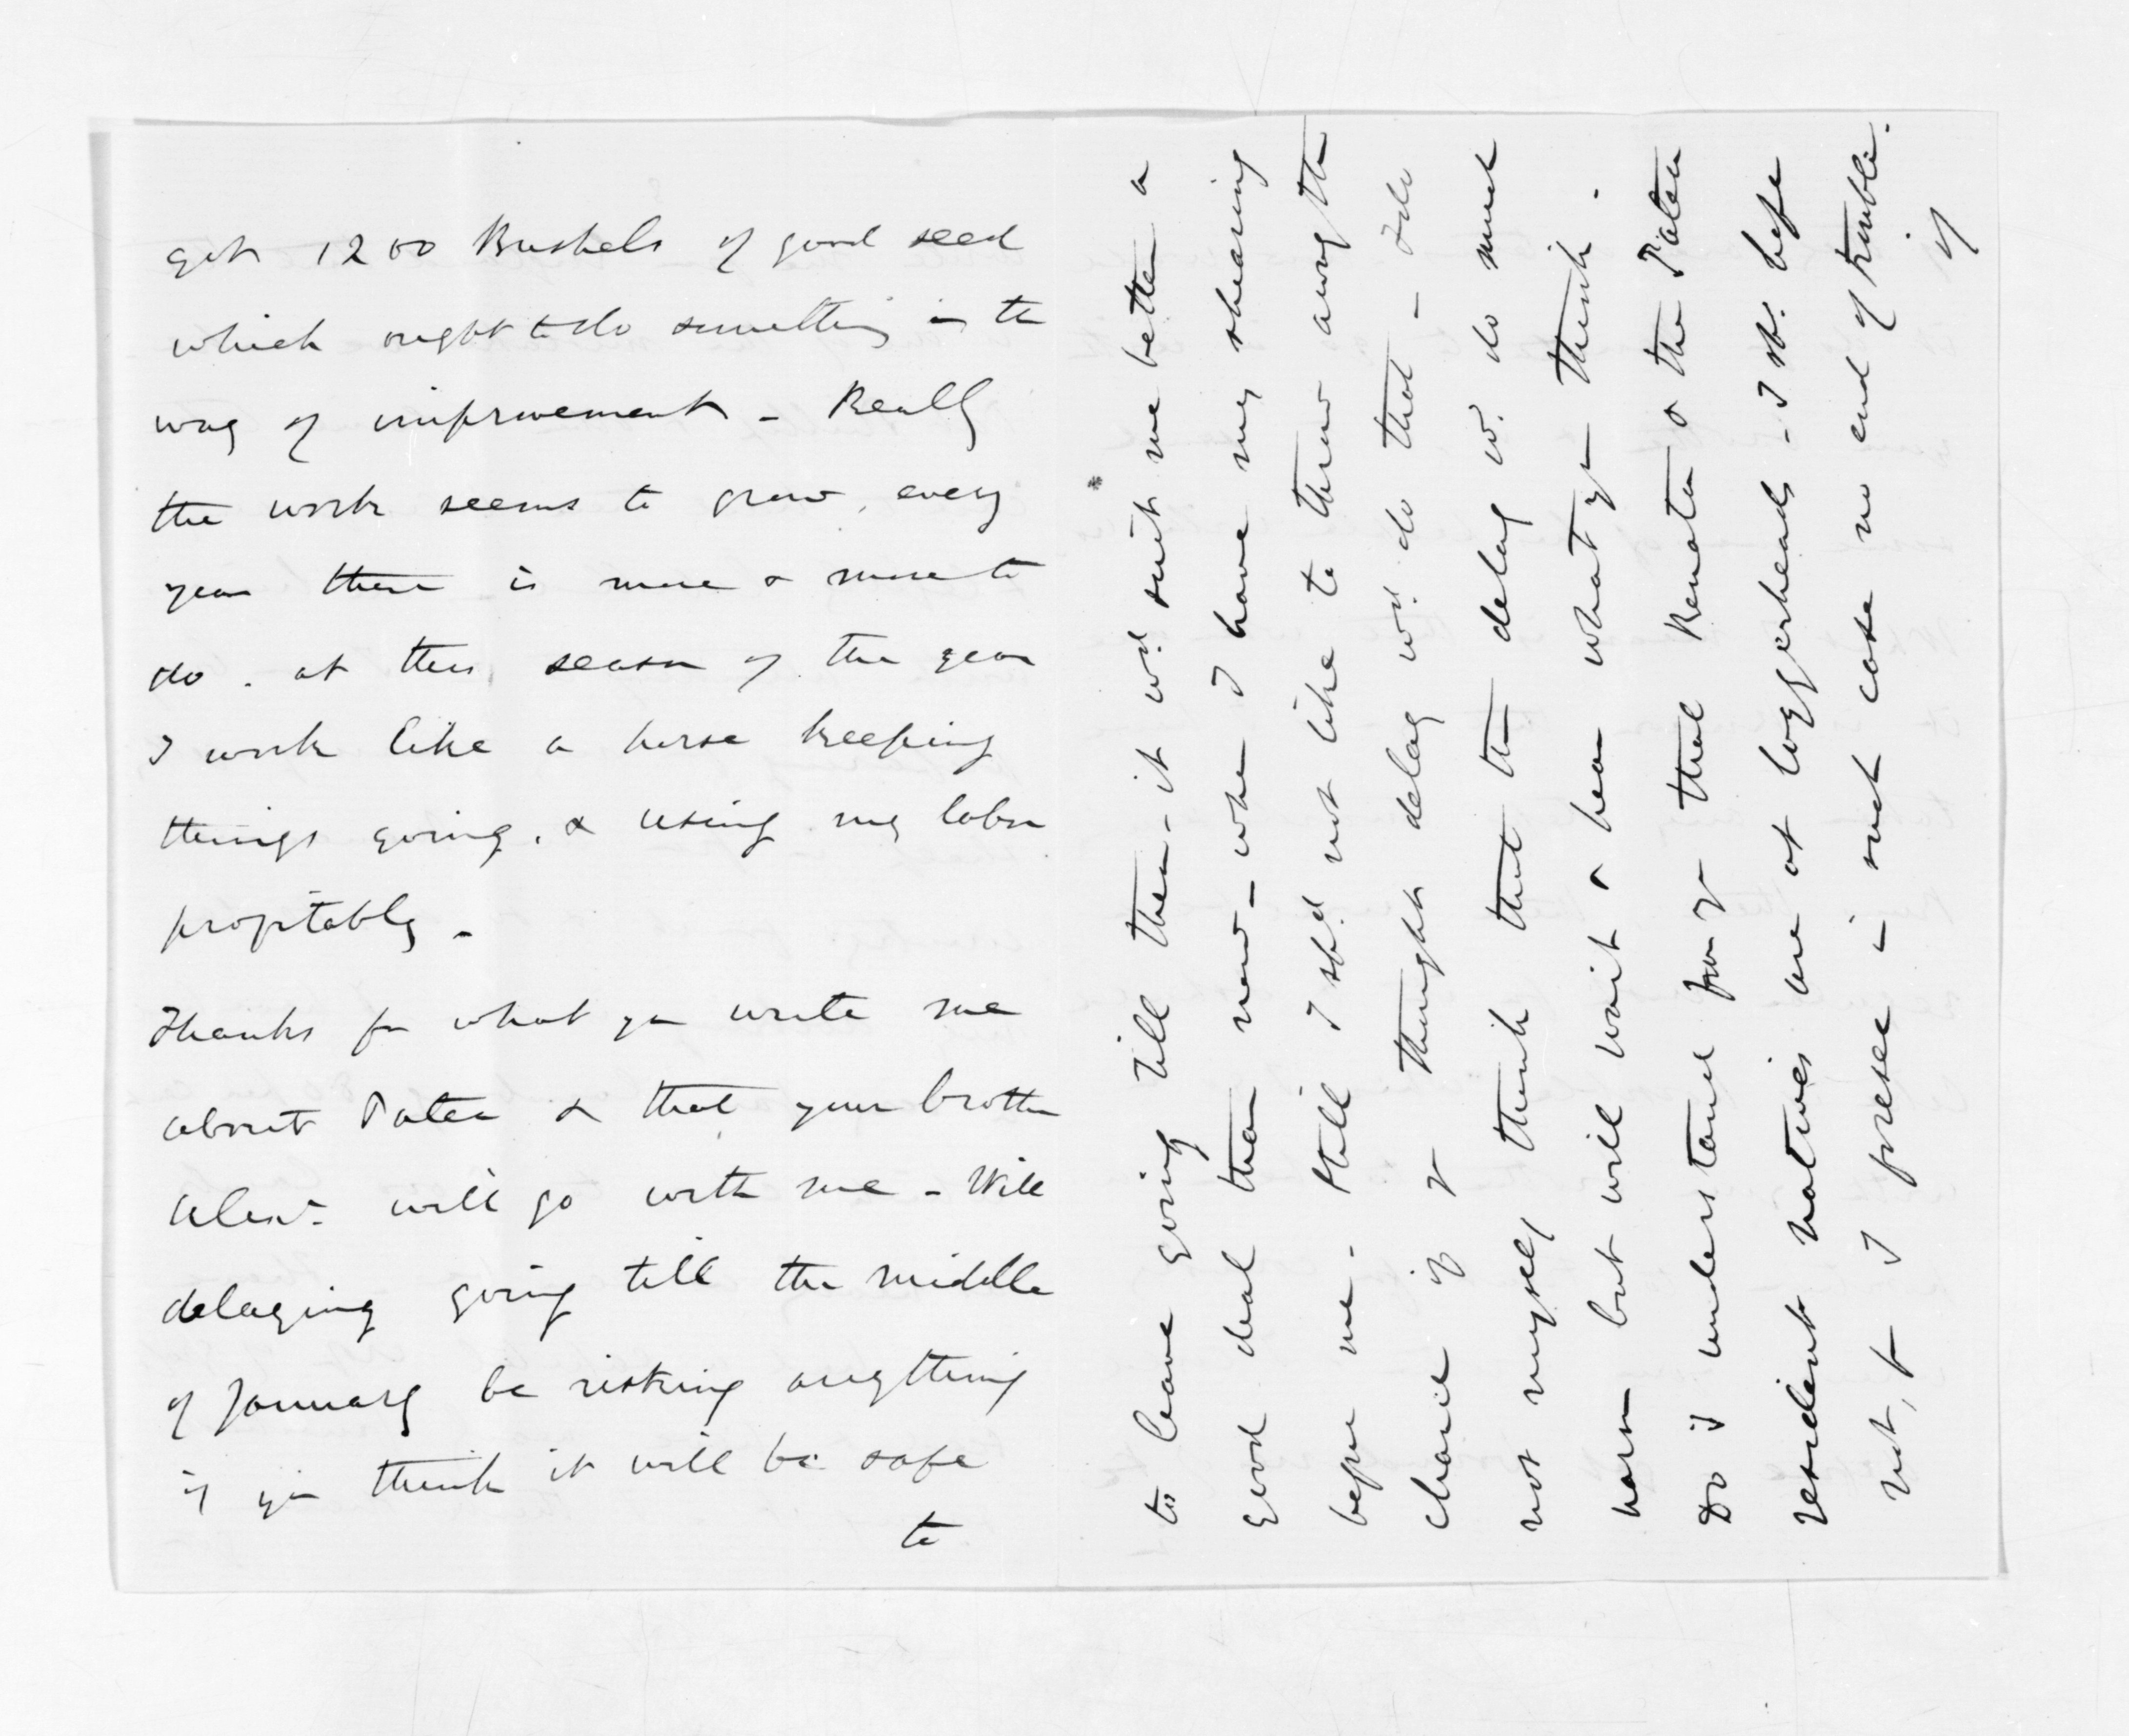 got 1200 Bushels of good seed
which ought to do something in the
way of improvement - Really
the work seems to grow, every
year there is more & more to
do. at this season of the year
I work like a horse keeping
things going, & using my labor
profitably -
Thanks for what you write me
about Patea & that your brother
Alexr. will go with me - Will
delaying going till the middle
of January be risking anything
if you think it will be safe
to
to leave going till then - it wd. suit me better a
good deal than now - when I have my shearing
before me. Still I shd. not like to throw away the
chance if you thought delay wd. do that - I do
not myself think that the delay wd. do much
harm but will wait & hear what you think -
Do I understand from you that Renata & the Patea
resident natives are at loggerheads - I sh. hope
not, for I foresee in such case no end of trouble.
if